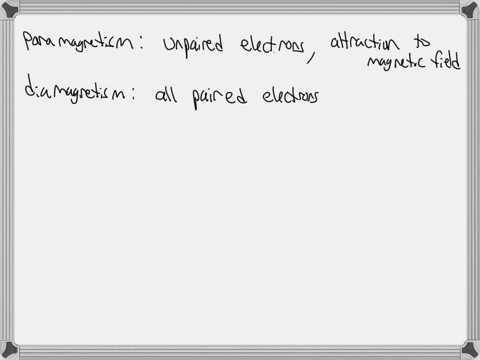 paramagnetism: unpaired electrons, attraction to
magnetic field
diamagnetism: all paired electrons